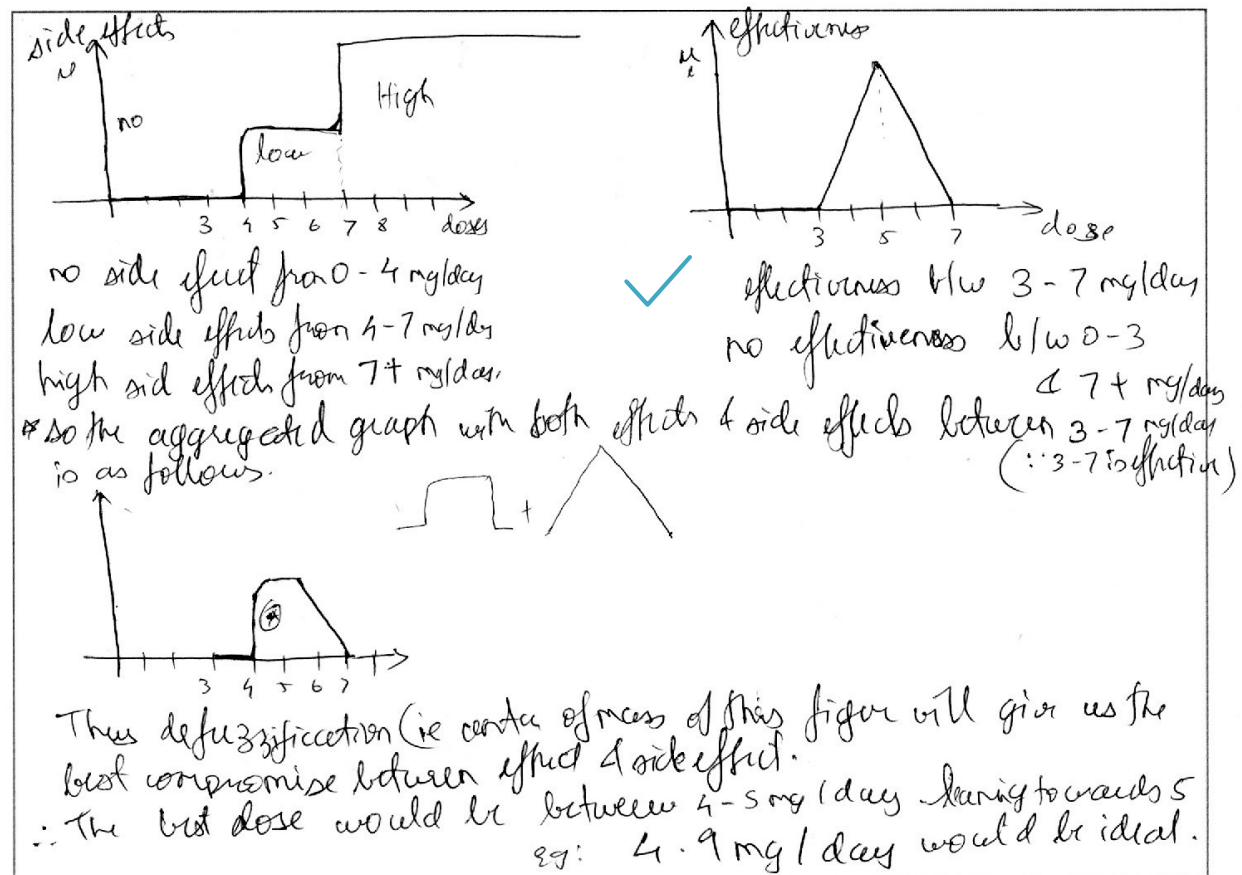 side effects
μ
no
low
High
3 4 5 6 7 8 doses
effectiveness
μ
3 5 7 dose
no side effect from 0 - 4 mg/day
low side effects from 4-7 mg/day
high sid effects from 7+ mg/day.
effectiveness b/w 3 - 7 mg/day
no effectiveness b/w 0-3
& 7+ mg/day
* so the aggregated graph with both effects & side effects between 3-7 mg/day
is as follows.
(∵ 3-7 is effective)
+
3 4 5 6 7
Thus defuzzification (ie center of mass of this figure will give us the
best compromise between effect & side effect.
∴ The best dose would be between 4-5 mg/day leaning towards 5
eg: 4.9 mg/day would be ideal.